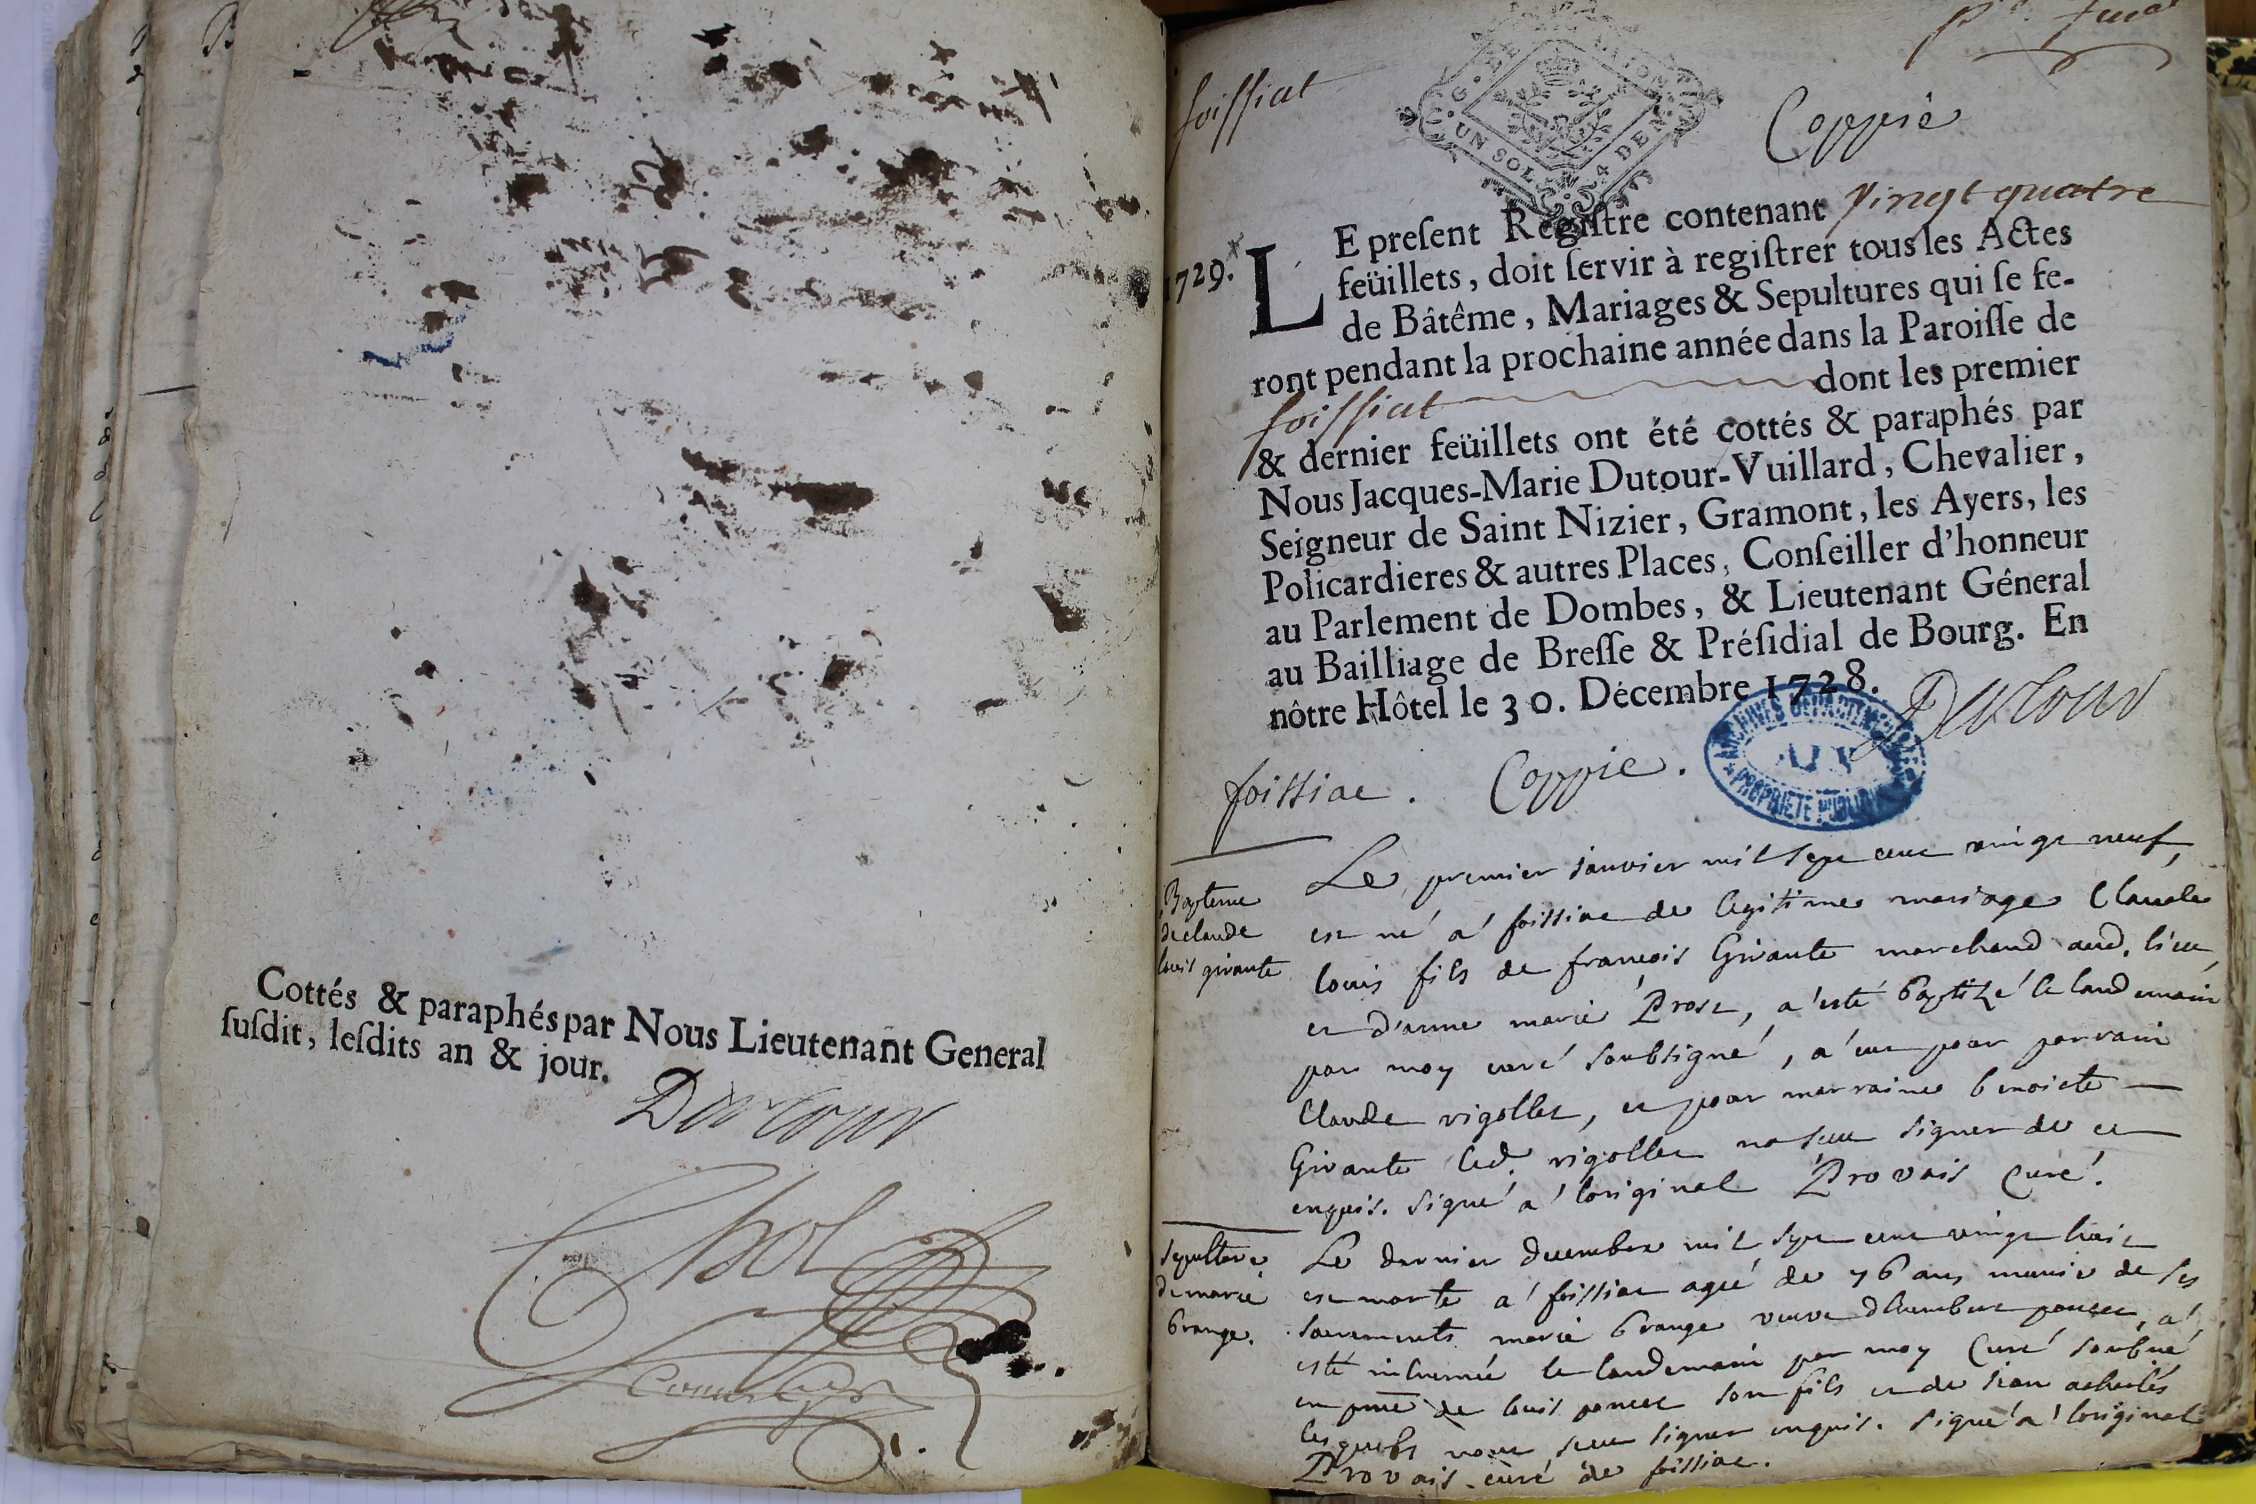 Cottés & paraphés par Nous Lieutenant General
ſuſdit, leſdits an & jour.
Dutour
Chol
Commis
foiſſiat
UN SOL 4 DEN
Coppie
1729.
LE preſent Regiſtre contenant vingt quatre
feüillets, doit ſervir à regiſtrer tous les Actes
de Bâtême, Mariages & Sepultures qui ſe fe-
ront pendant la prochaine année dans la Paroiſſe de
foiſſiat dont les premier
& dernier feüillets ont été cottés & paraphés par
Nous Jacques-Marie Dutour-Vuillard, Chevalier,
Seigneur de Saint Nizier, Gramont, les Ayers, les
Policardieres & autres Places, Conſeiller d'honneur
au Parlement de Dombes, & Lieutenant Géneral
au Bailliage de Breſſe & Préſidial de Bourg. En
nôtre Hôtel le 30. Décembre 1728.
Dutour
ARCHIVES DEPARTEMENTALES
AIN
PROPRIETE PUBLIQUE
foissiat. Coppie.
Bapteme
de claude
louis givante
Le premier janvier mil sept cent vingt neuf,
est né a foissiat de legitime mariage Claude
louis fils de francois Givante marchand aud. lieu,
et d'anne marie Prost, a esté baptizé le landemain
par moy curé soubsigné, a eut pour parrain
Claude rigollet, et pour marraine benoicte
Givante led. rigollet na sceu signer de ce
enquis. signé a l'original Provais Curé.
sepulture
de marie
brange.
Le dernier decembre mil sept cent vingt huit
est morte a foissiat agée de 76 ans munie de ses
sacrements marie brange veuve d'humbert poncet, a
esté inhumée le landemain par moy Curé soubné
en pnce de louis poncet son fils et de jean
lesquels n'ont sceu signer enquis. signé a l'original
Provais curé de foissiat.